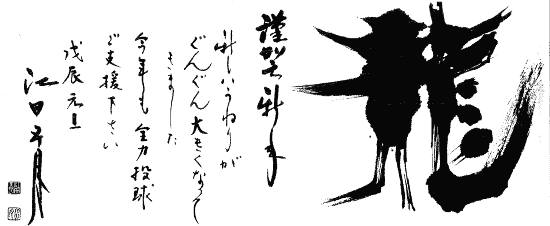 龍
謹賀新年
新しいうねりが
ぐんぐん大きくなって
きました
今年も全力投球
ご支援下さい
戊辰元旦
江田五月